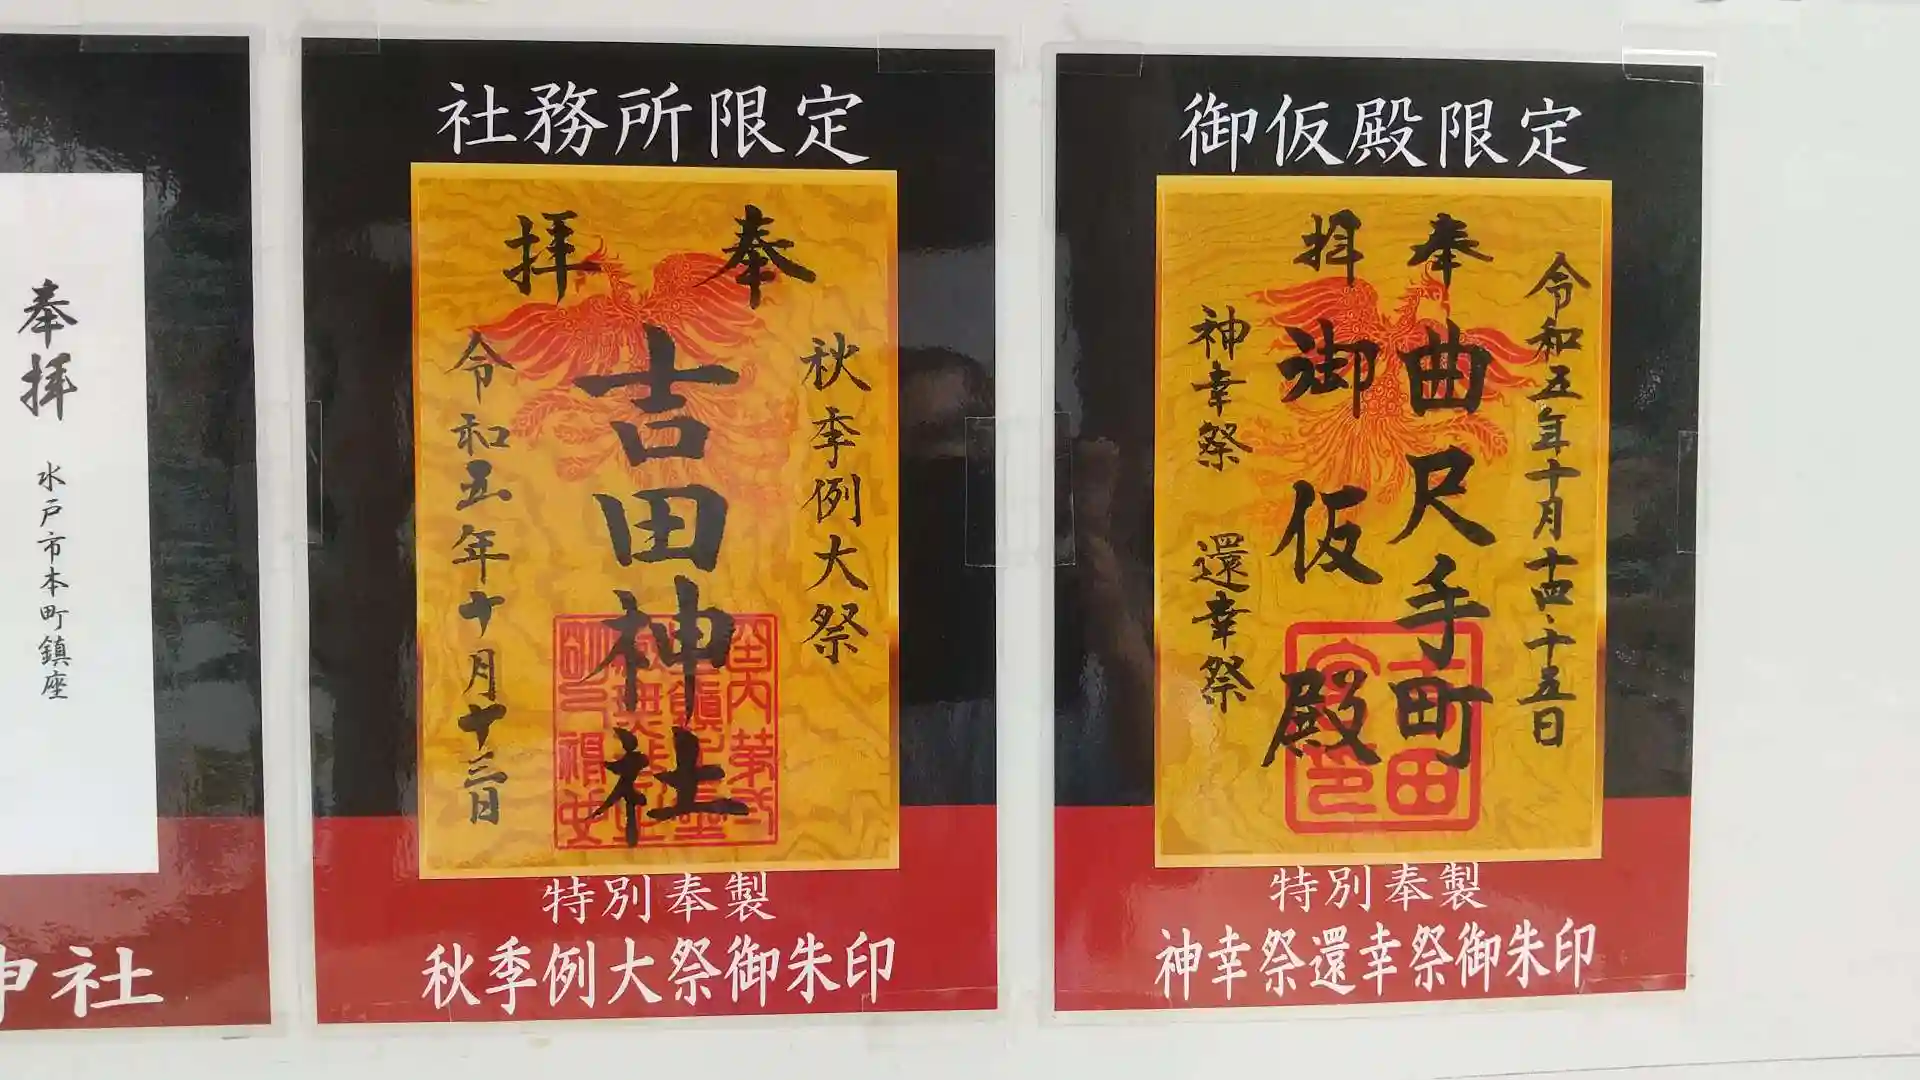 奉拝
水戸市本町鎮座
神社
社務所限定
奉拝
秋季例大祭
吉田神社
令和五年十月十三日
特別奉製
秋季例大祭御朱印
御仮殿限定
令和五年十月十四・十五日
奉拝
曲尺手町
御仮殿
神幸祭 還幸祭
特別奉製
神幸祭還幸祭御朱印